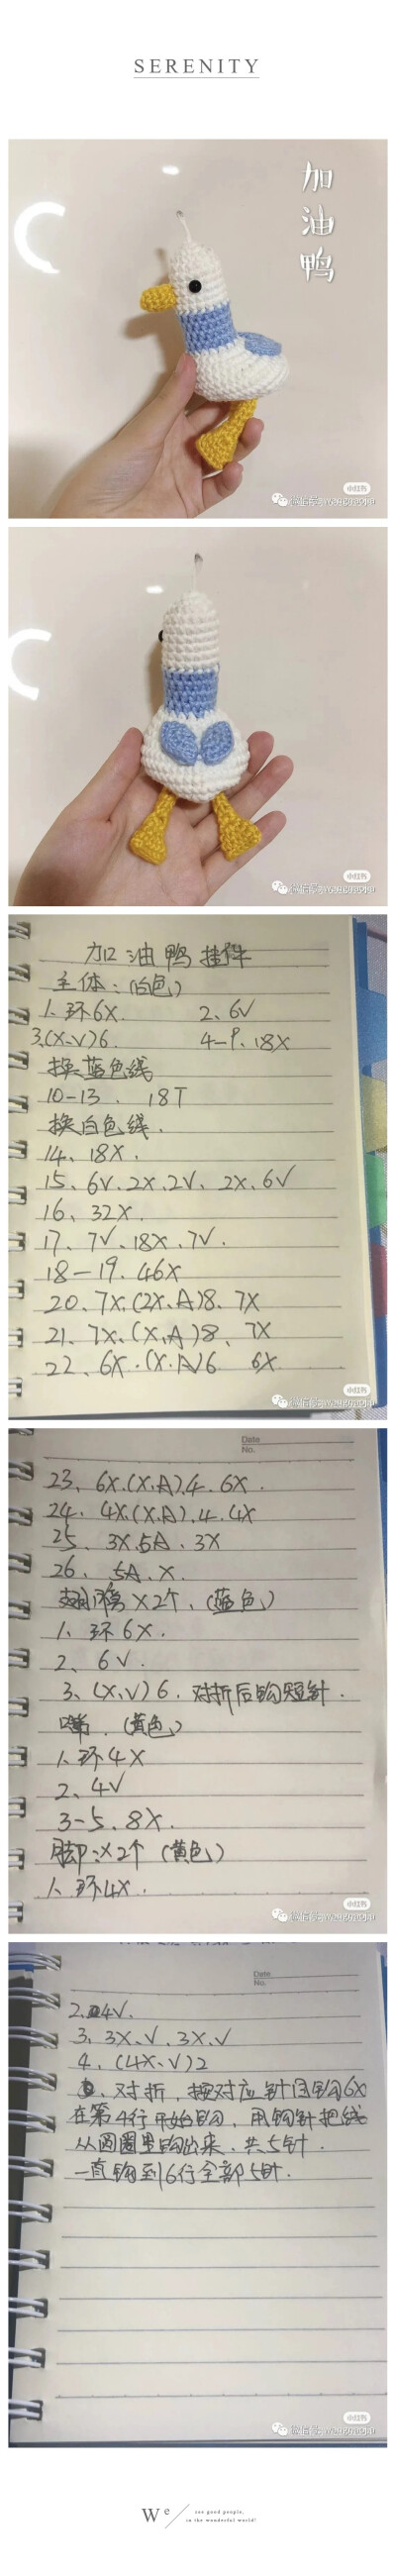 SERENITY
加
油
鸭
小红书
加油鸭挂件
主体:(白色)
1、环6X. 2、6V
3.(X、V)6. 4-9、18X
换蓝色线
10-13、18T
换白色线.
14、18X.
15、6V.2X.2V、2X、6V
16、32X.
17、7V.18X.7V.
18-19.46X
20、7X.(2X、A)8、7X
21、7X、(X、A)8、7X
22、6X.(X.A)6 6X
小红书
Date
No.
23、6X.(X、A).4.6X.
24、4X.(X、A).4.4X
25、3X.5A.3X
26、5A.X.
翅膀X2个.(蓝色)
1、环6X.
2、6V.
3、(X、V)6.对折后钩短针.
嘴.(黄色)
1、环4X
2、4V
3-5、8X.
脚:X2个(黄色)
1、环4X.
小红书
Date
No.
2、4V.
3、3X、V、3X、V
4、(4X、V)2
对折,按对应针目钩6X
在第4行开始钩,用钩针把线
从圆圈里钩出来.共5针.
一直钩到6行全部5针.
小红书
We
see good people,
in the wonderful world!